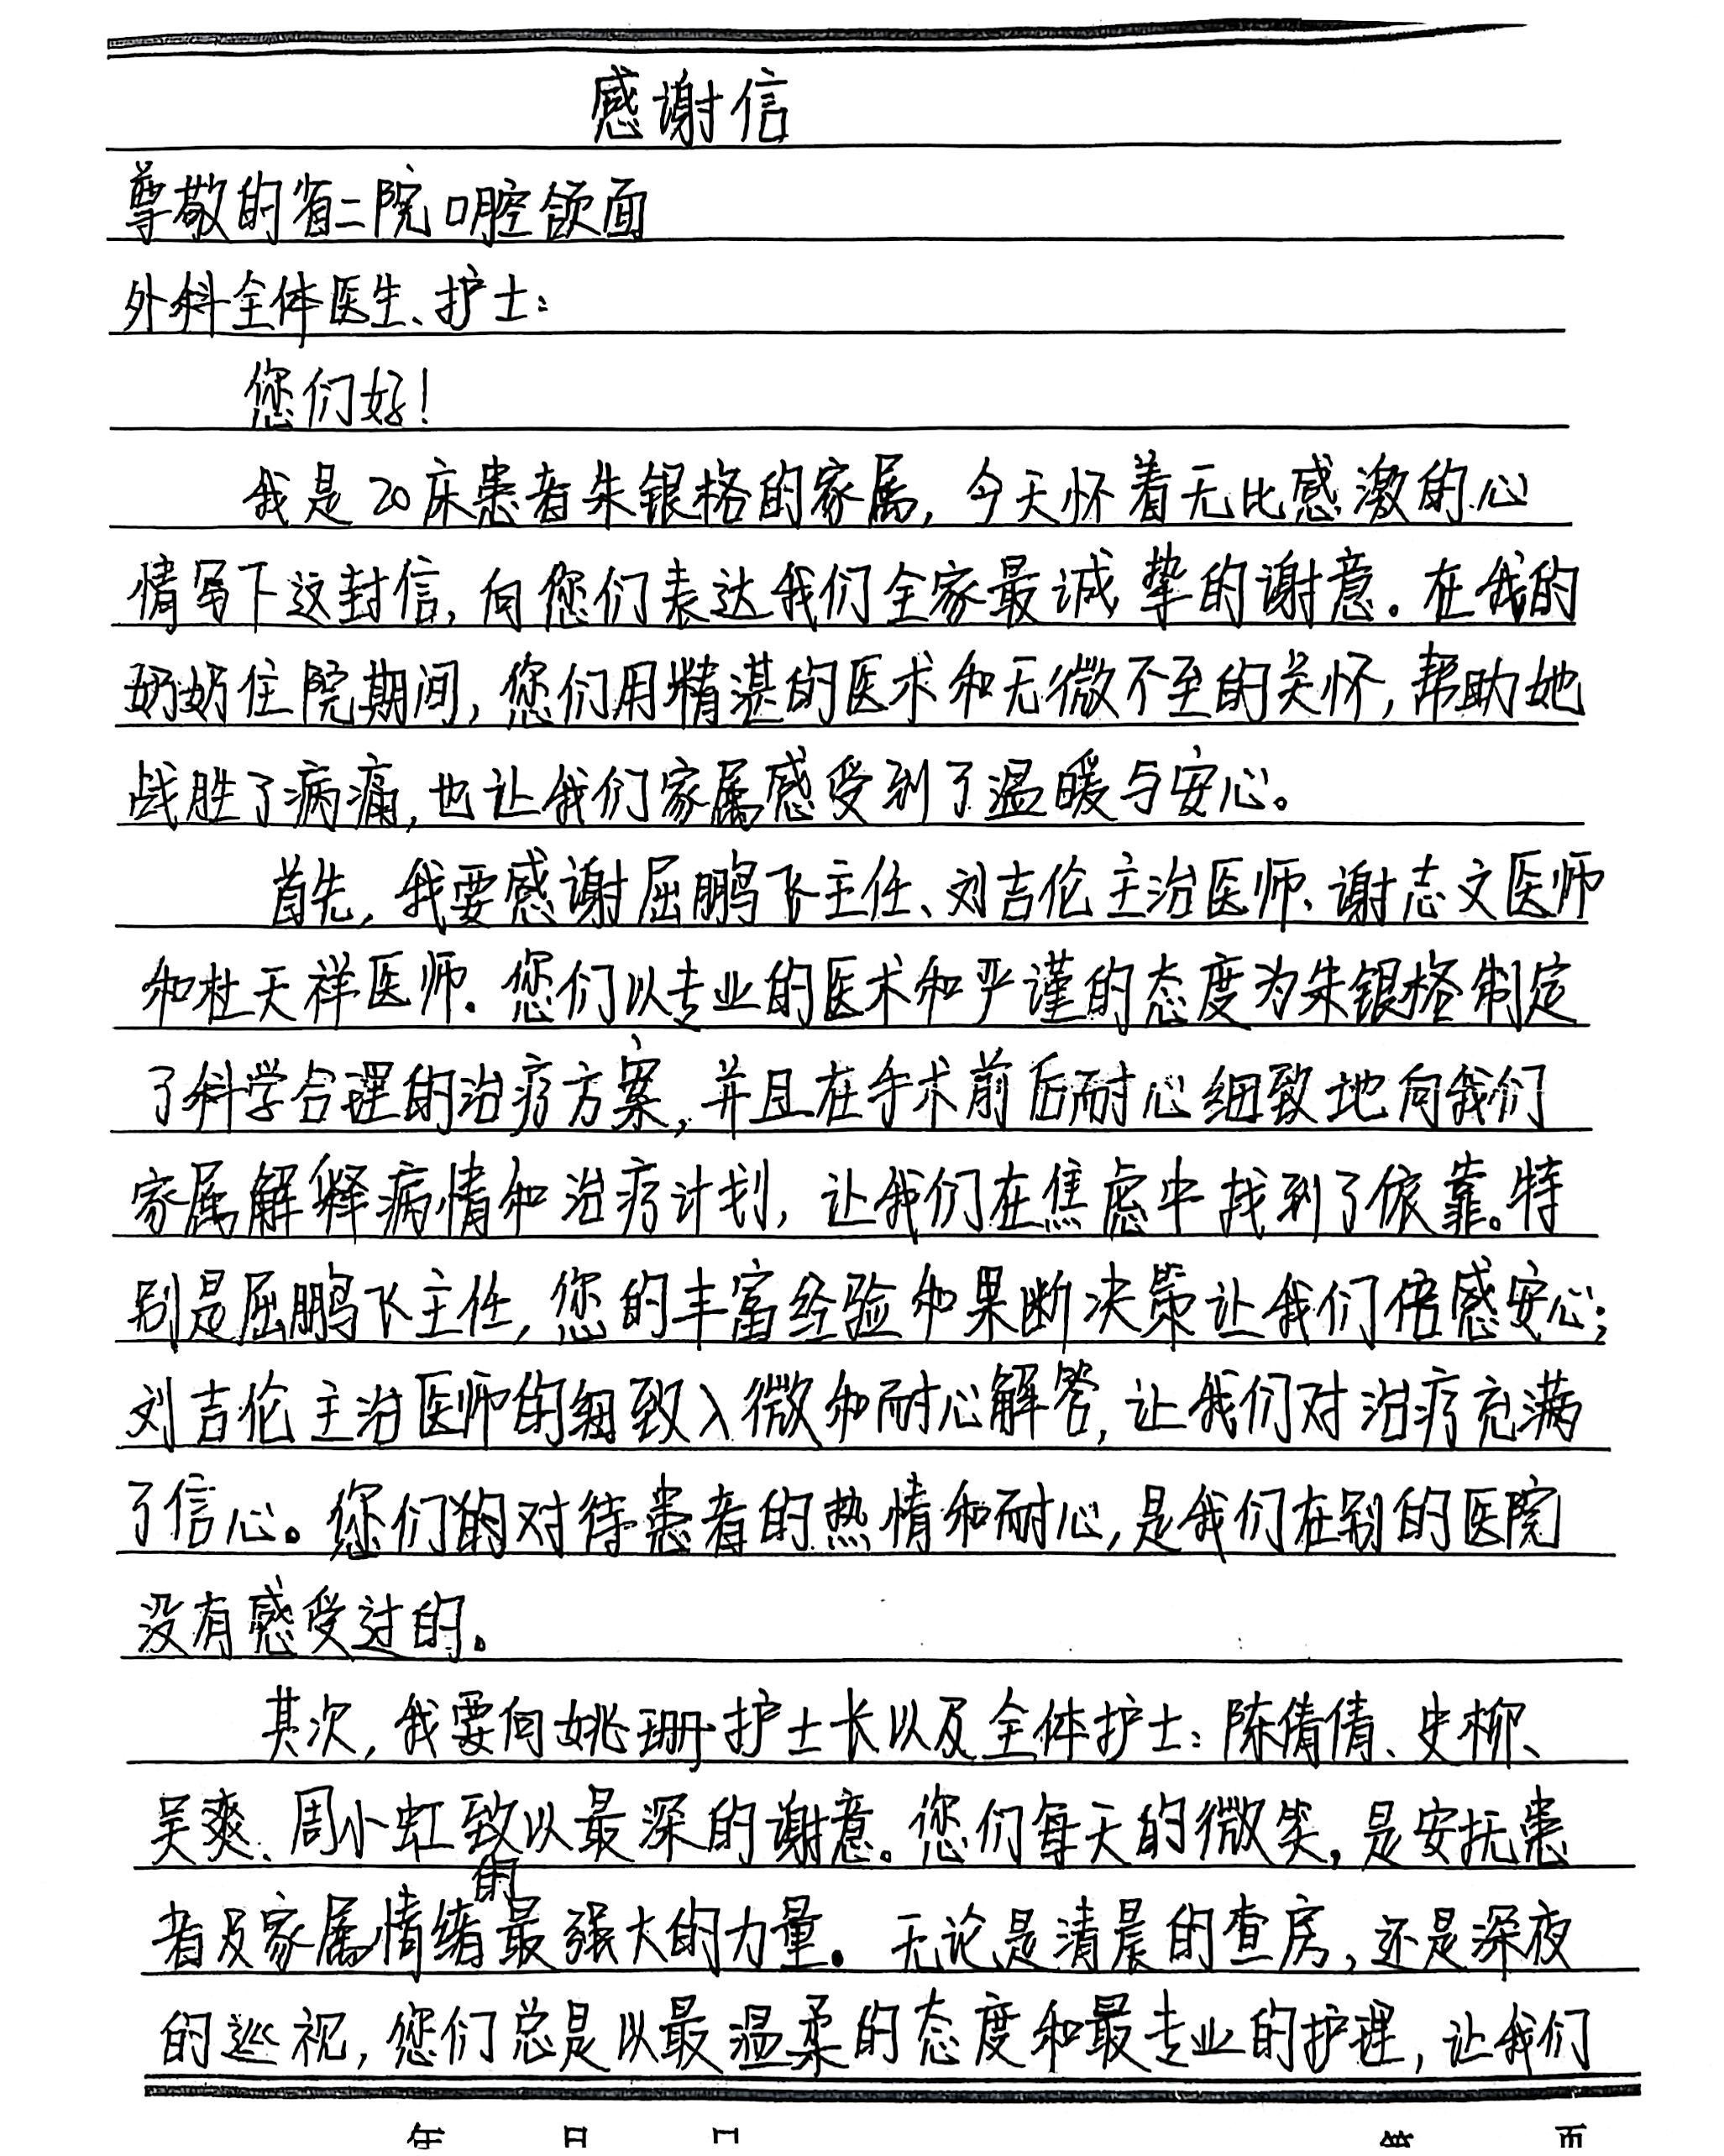 感谢信
尊敬的省二院口腔颌面
外科全体医生、护士:
您们好!
我是20床患者朱银格的家属,今天怀着无比感激的心
情写下这封信,向您们表达我们全家最诚挚的谢意。在我的
奶奶住院期间,您们用精湛的医术和无微不至的关怀,帮助她
战胜了病痛,也让我们家属感受到了温暖与安心。
首先,我要感谢屈鹏飞主任、刘吉伦主治医师、谢志文医师
和杜天祥医师。您们以专业的医术和严谨的态度为朱银格制定
了科学合理的治疗方案,并且在手术前后耐心细致地向我们
家属解释病情和治疗计划,让我们在焦虑中找到了依靠。特
别是屈鹏飞主任,您的丰富经验和果断决策让我们倍感安心;
刘吉伦主治医师的细致入微和耐心解答,让我们对治疗充满
了信心。您们的对待患者的热情和耐心,是我们在别的医院
没有感受过的。
其次,我要向姚珊护士长以及全体护士:陈倩倩、史柳、
吴爽、周小虹致以最深的谢意。您们每天的微笑,是安抚患
者及家属情绪的最强大的力量。无论是清晨的查房,还是深夜
的巡视,您们总是以最温柔的态度和最专业的护理,让我们
年 月 日 第 页